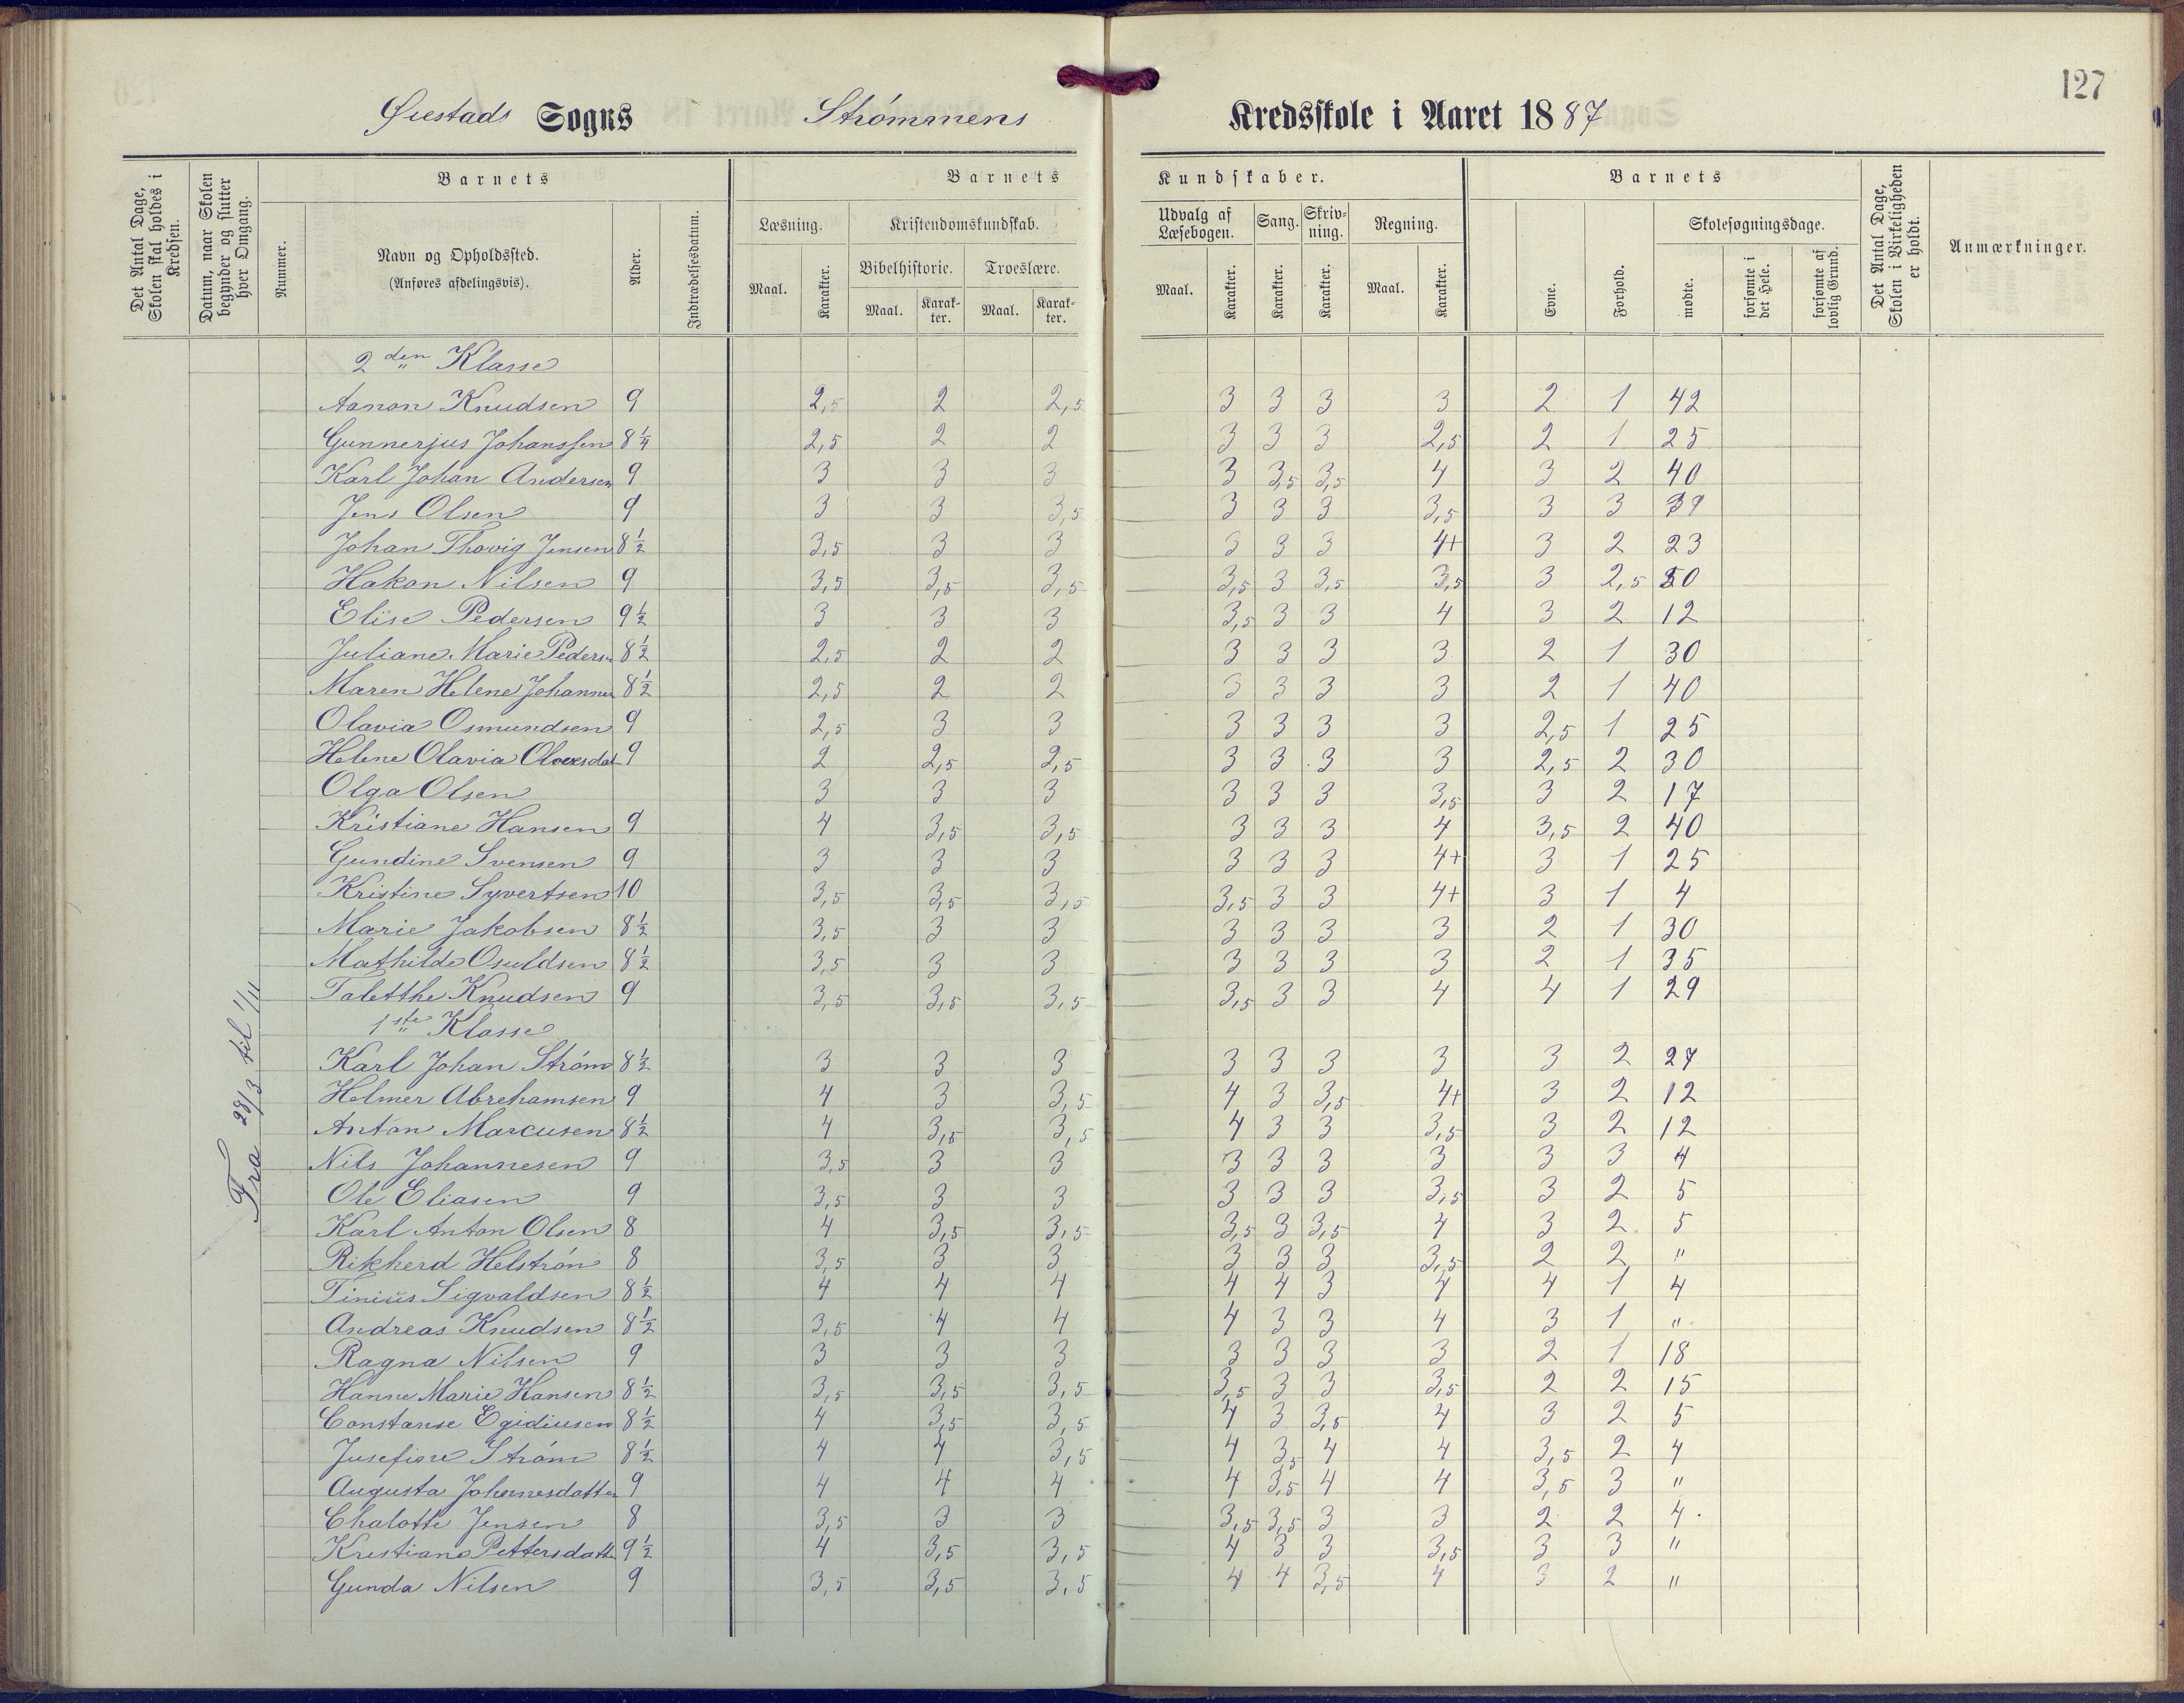 127
Øiestads Sogns Strömmens Kredsskole i Aaret 1887
Det Antal Dage, Skolen skal holdes i Kredsen.
Datum, naar Skolen begynder og slutter hver Omgang.
Barnets
Nummer.
Navn og Opholdssted.
(Anføres afdelingsvis).
Alder.
Indtrædelsesdatum.
Barnets Kundskaber.
Læsning.
Maal. Karakter.
Kristendomskundskab.
Bibelhistorie. Troeslære.
Maal. Karakter. Maal. Karakter.
Udvalg af Læsebogen.
Maal. Karakter.
Sang.
Karakter.
Skrivning.
Karakter.
Regning.
Maal. Karakter.
Barnets
Evne. Forhold.
Skolesøgningsdage.
mødte. forsømte i det Hele. forsømte af lovlig Grund.
Det Antal Dage, Skolen i Virkeligheden er holdt.
Anmærkninger.
Fra 28/3 til 1/11
2den Klasse
Aanon Knudsen 9 2,5 2 2,5 3 3 3 3 2 1 42
Gunnerjus Johanssen 8 1/4 2,5 2 2 3 3 3 2,5 2 1 25
Karl Johan Andersen 9 3 3 3 3 3,5 3,5 4 3 2 40
Jens Olsen 9 3 3 3,5 3 3 3 3,5 3 3 39
Johan Thovig Jensen 8 1/2 3,5 3 3 3 3 3 4+ 3 2 23
Hakon Nilsen 9 3,5 3,5 3,5 3,5 3 3,5 3,5 3 2,5 50
Elise Pedersen 9 1/2 3 3 3 3,5 3 3 4 3 2 12
Juliane Marie Pedersn 8 1/2 2,5 2 2 3 3 3 3 2 1 30
Maren Helene Johannes 8 1/2 2,5 2 2 3 3 3 3 2 1 40
Olavia Osmundsen 9 2,5 3 3 3 3 3 3 2,5 1 25
Helene Olavia Olversdat 9 2 2,5 2,5 3 3 3 3 2,5 2 30
Olga Olsen 3 3 3 3 3 3 3,5 3 2 17
Kristiane Hansen 9 4 3,5 3,5 3 3 3 4 3,5 2 40
Gundine Svensen 9 3 3 3 3 3 3 4+ 3 1 25
Kristine Syvertsen 10 3,5 3,5 3,5 3,5 3 3 4+ 3 1 4
Marie Jakobsen 8 1/2 3,5 3 3 3 3 3 3 2 1 30
Mathilde Osuldsen 8 1/2 3,5 3 3 3 3 3 3 2 1 35
Taletthe Knudsen 9 3,5 3,5 3,5 3,5 3 3 4 4 1 29
1ste Klasse
Karl Johan Ström 8 1/2 3 3 3 3 3 3 3 3 2 27
Helmer Abrehamsen 9 4 3 3,5 4 3 3,5 4+ 3 2 12
Anton Marcusen 8 1/2 4 3,5 3,5 4 3 3 3,5 3 2 12
Nils Johannesen 9 3,5 3 3 3 3 3 3 3 3 4
Ole Eliasen 9 3,5 3 3 3 3 3 3,5 3 2 5
Karl Anton Olsen 8 4 3,5 3,5 3,5 3 3,5 4 3 2 5
Rikherd Helströn 8 3,5 3 3 3 3 3 3,5 2 2 "
Tinius Sigvaldsen 8 1/2 4 4 4 4 4 3 4 4 1 4
Andreas Knudsen 8 1/2 3,5 4 4 4 3 3 4 3 1 "
Ragna Nilsen 9 3 3 3 3 3 3 3 2 1 18
Hanne Marie Hansen 8 1/2 3,5 3,5 3,5 3,5 3 3 3,5 2 2 15
Constanse Egidiusen 8 1/2 4 3,5 3,5 4 3 3,5 4 3 2 5
Jusefine Ström 8 1/2 4 4 3,5 4 3,5 4 4 3,5 2 4
Augusta Johannesdatter 9 4 4 4 4 3,5 4 4 3,5 3 "
Chalotte Jensen 8 3,5 3 3 3,5 3,5 3 3 2 2 4
Krestiane Pettersdatte 9 1/2 4 3,5 3,5 4 3 3 3,5 3 3 "
Gunda Nilsen 9 3,5 3,5 3,5 4 4 3,5 4 3 2 "